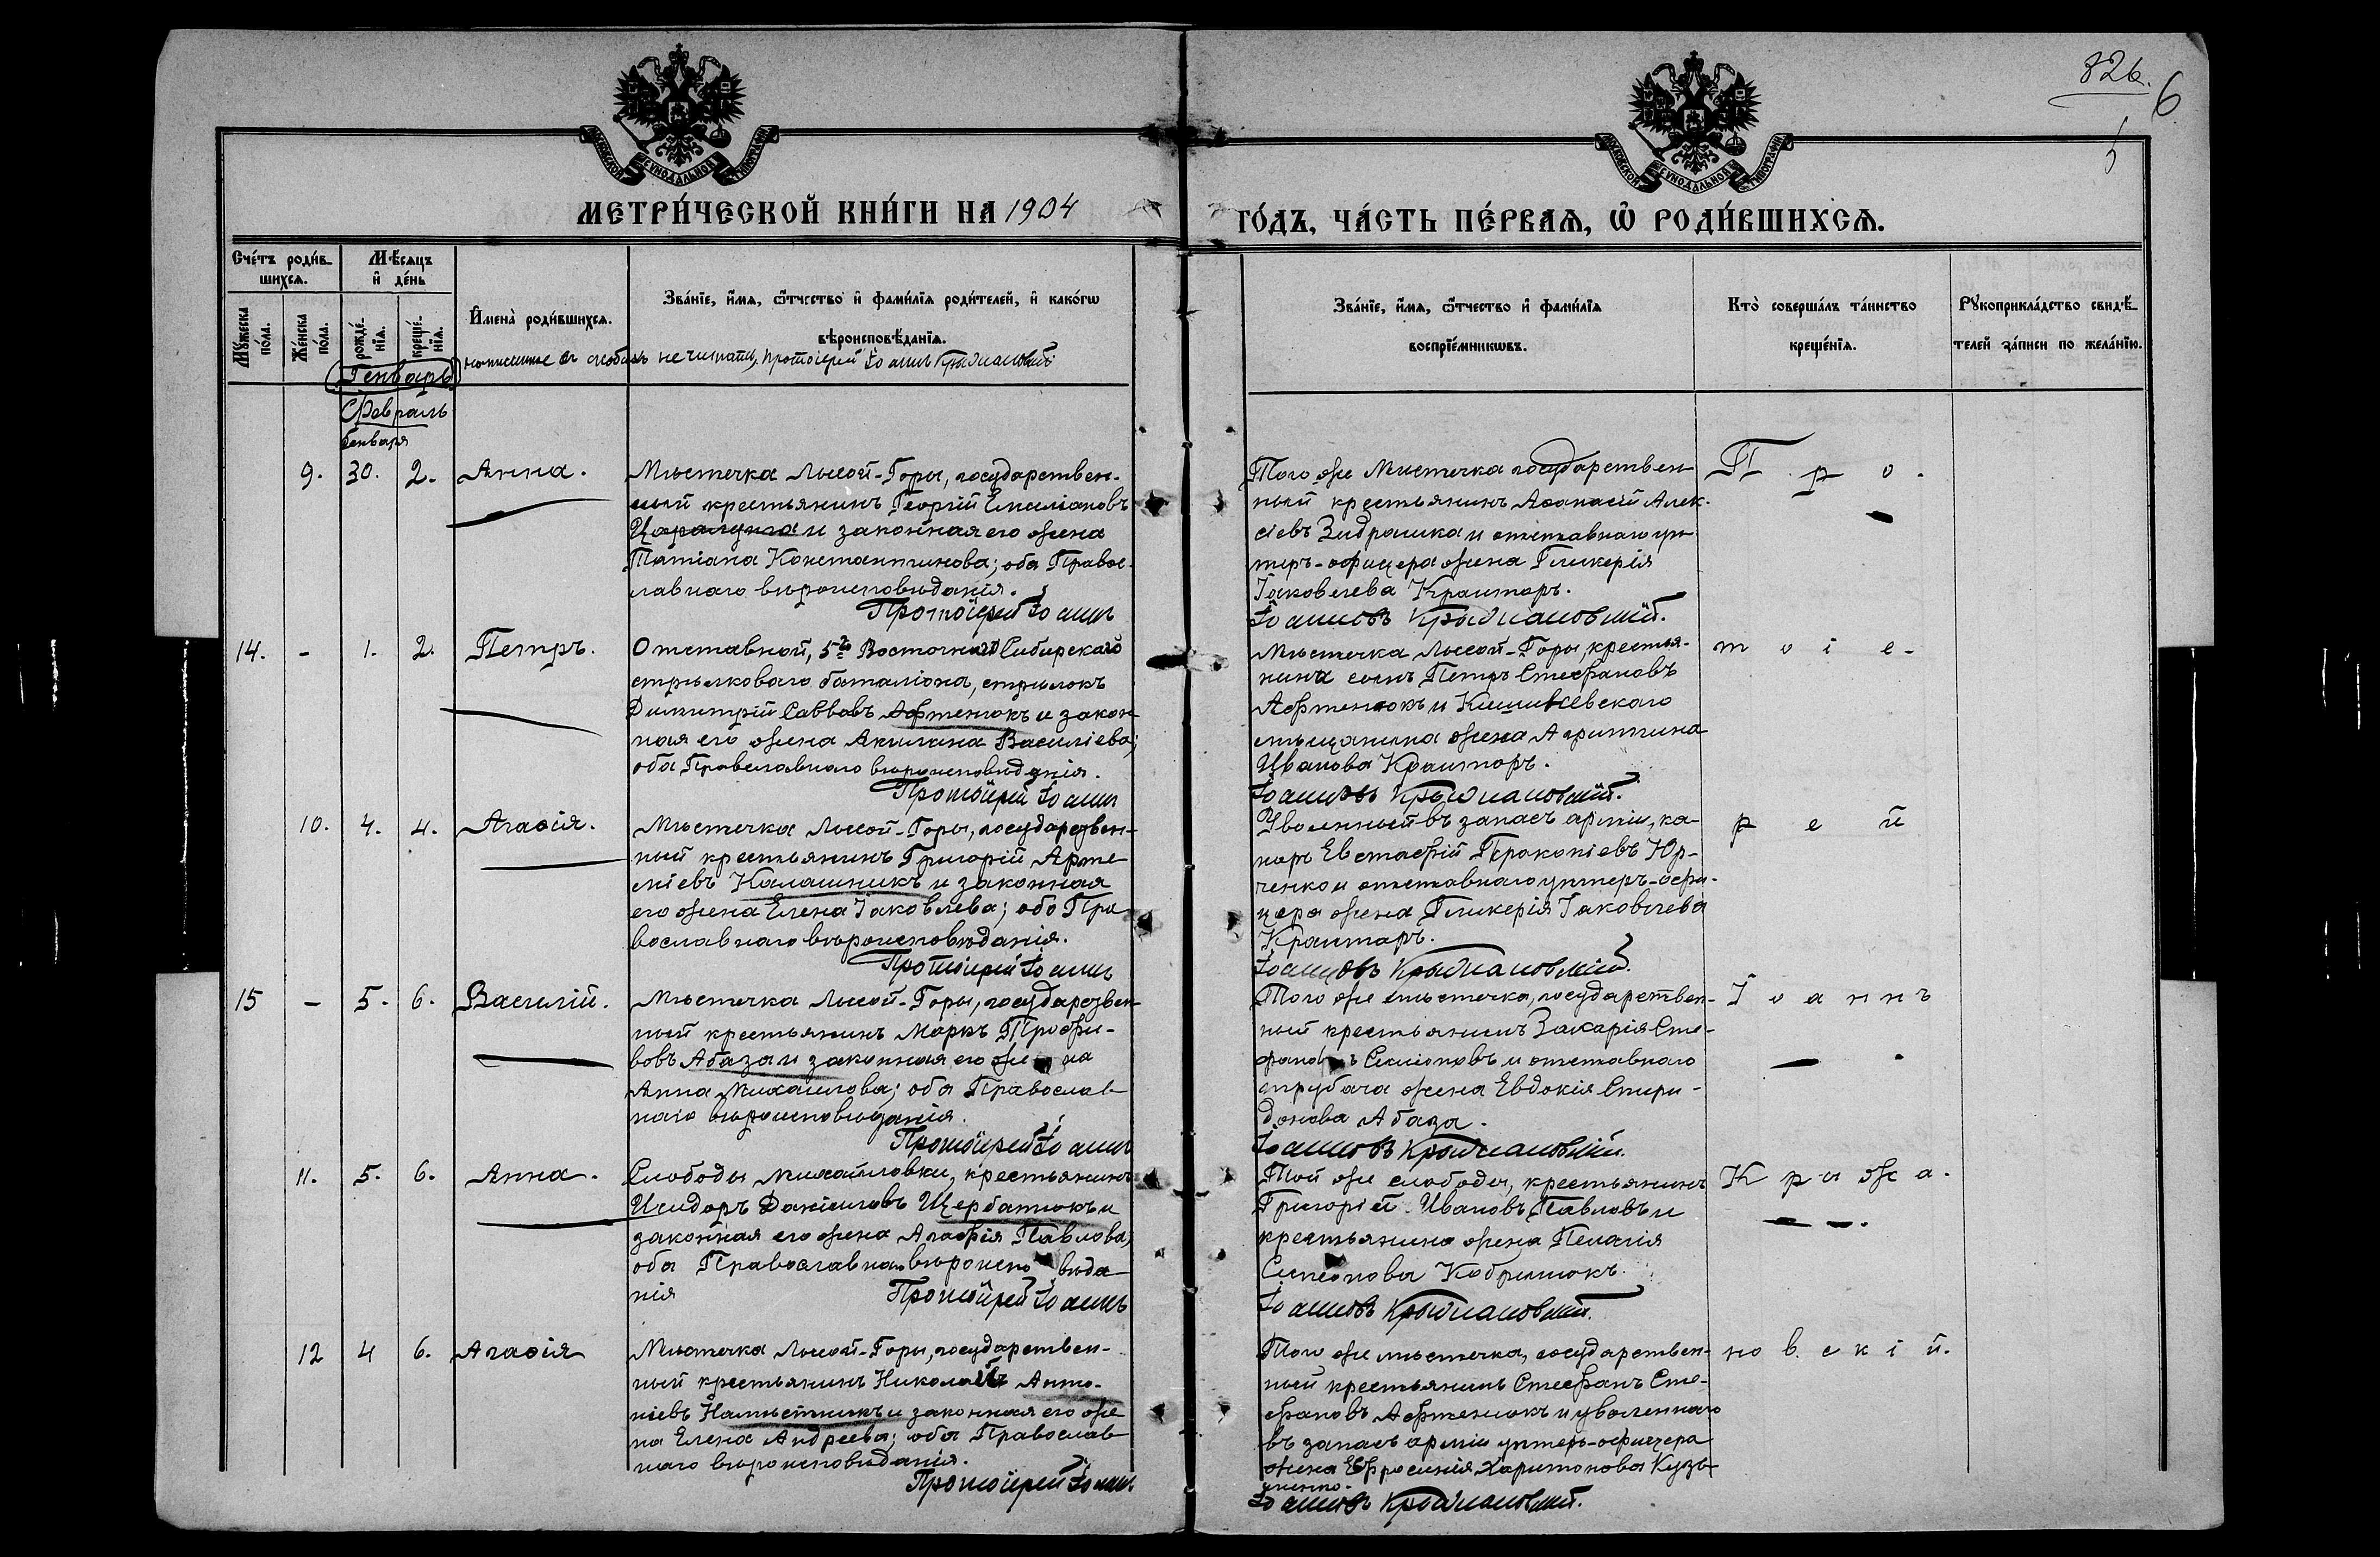 826.
6
МОСКОВСКОЙ СѴНОДАЛЬНОЙ ТИПОГРАФІИ
МОСКОВСКОЙ СѴНОДАЛЬНОЙ ТИПОГРАФІИ
МЕТРИ́ЧЕСКОЙ КНИ́ГИ НА 1904
ГО́ДЪ, ЧА́СТЬ ПЕ́РВАЯ, Ѡ҆ РОДИ́ВШИХСЯ.
Сче́тъ роди́в-
шихся.
Мꙋ́жеска по́ла.
Же́нска по́ла.
Мѣ́сяцъ
и҆ де́нь
рожде́-нїя.
креще́-нїя.
И҆мена̀ роди́вшихся.
Зва́нїе, и҆́мя, ѻ҆́тчество и҆ фами́лїя роди́телей, и҆ како́гѡ
вѣроисповѣ́данїя.
Зва́нїе, и҆́мя, ѻ҆́тчество и҆ фами́лїя
воспрїе́мникѡвъ.
Кто̀ соверша́лъ та́инство
креще́нїя.
Рꙋкоприкла́дство свидѣ́-
телей за́писи по жела́нїю.
Генварь
не читать, Протоіерей Іоаннъ Крыжановскій
Февраль
Генваря
9. 30. 2. Анна.
Мѣстечка Лысой-Горы, государствен-
ный крестьянинъ Георгій Емиліановъ
и законная его жена
Татіана Константинова; оба Правос-
лавнаго вѣроисповѣданія.
Протоіерей Іоаннъ
Того же Мѣстечка государствен-
ный крестьянинъ Аѳанасій Алек-
сіевъ и отставнаго ун-
теръ-офицера жена Гликерія
Іаковлева Крамторъ.
Іоанновъ Крыжановскій.
П р о -
14. - 1. 2. Петръ.
Отставной, 5го Восточнаго Сибирскаго
стрѣлковаго баталіона, стрѣлокъ
Димитрій Саввовъ Афтенюкъ и закон-
ная его жена Акилина Василіева;
оба Православнаго вѣроисповѣданія.
Протоіерей Іоаннъ
Мѣстечка Лысой-Горы, крестья-
нина сынъ Петръ Стефановъ
Афтенюкъ и Кишиневскаго
мѣщанина жена Агриппина
Иванова Крамторъ.
Іоанновъ Крыжановскій.
т о і е -
10. 4. 4. Агаѳія.
Мѣстечка Лысой-Горы, государствен-
ный крестьянинъ Григорій Арте-
міевъ Калашникъ и законная
его жена Елена Іаковлева; оба Пра-
вославнаго вѣроисповѣданія.
Протоіерей Іоаннъ
Уволенный въ запасъ арміи, ка-
норъ Евстафій Прокопіевъ Юр-
ченко и отставнаго унтеръ-офи-
цера жена Гликерія Іаковлева
Крамторъ.
Іоанновъ Крыжановскій.
р е й
15 - 5. 6. Василій.
Мѣстечка Лысой-Горы, государствен-
ный крестьянинъ Маркъ Трофи-
мовъ Абаза и законная его жена
Анна Михаилова; оба Православ-
наго вѣроисповѣданія.
Протоіерей Іоаннъ
Того же мѣстечка, государствен-
ный крестьянинъ Захарія Сте-
фановъ Симоновъ и отставнаго
трубача жена Евдокія Спири-
донова Абаза.
Іоанновъ Крыжановскій.
І о а н н ъ
11. 5. 6. Анна.
Слободы Михайловки, крестьянинъ
Исидоръ Даніиловъ Щербатюкъ и
законная его жена Агафія Павлова,
оба Православнаго вѣроисповѣда-
нія
Протоіерей Іоаннъ
Той же слободы, крестьянинъ
Григорій Ивановъ Павловъ и
крестьянина жена Пелагія
Симеонова Кобрынюкъ.
Іоанновъ Крыжановскій.
К р ы ж а -
12 4 6. Агаѳія
Мѣстечка Лысой-Горы, государствен-
ный крестьянинъ Николай Анто-
ніевъ Намѣстникъ и законная его же-
на Елена Андреева; оба Православ-
наго вѣроисповѣданія.
Протоіерей Іоаннъ
Того же мѣстечка, государствен-
ный крестьянинъ Стефанъ Сте-
фановъ Афтенюкъ и уволеннаго
въ запасъ арміи унтеръ-офицера
жена Ефросинія Харитонова Кузь-
менко.
Іоанновъ Крыжановскій.
н о в с к і й.